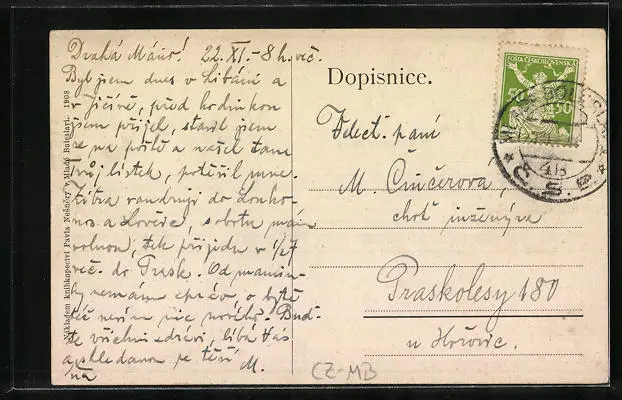 Drahá Máňo! 22. XI. - 8 h. več.
Byl jsem dnes v Libáni a
v Jičíně, před hodinkou
jsem přijel, stavil jsem
se na poště a našel tam
Tvůj lístek, potěšil mne.
Zítra vanduji do Louko-
nos a Lovčic, sobotu mám
volnou, tak přijedu v 1/2 7
več. do Prask. Od mamin-
ky nemám zpráv, o bytě
též nevím nic nového. Buď-
te všichni zdrávi, líbá Vás
a shledanou se těší
na M.
Nákladem knihkupectví Pavla Nešněry v Mladé Boleslavi. 1908
Dopisnice.
POŠTA ČESKOSLOVENSKÁ
50 50
Velect. paní
M. Činčerova,
choť inženýra
Praskolesy 180
u Hořovic.
CZ-MB